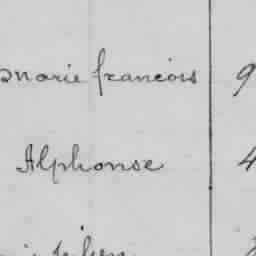 marie francois 9
Alphonse 4